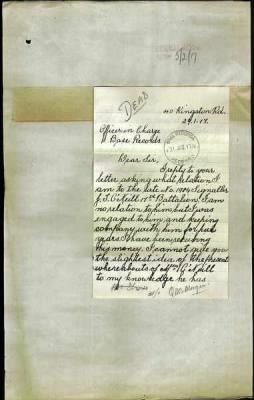 5/2/17
DEAD
40 Kingston Rd.
29.1.17.
Officer in Charge
Base Records
Dear Sir,
I reply to your
letter asking what relation I
am to the late No Signaller
J. S. O'Neill 17th Battalion I am
no relation to him, but I was
engaged to him, and keeping
company with him for five
years & have been receiving
his money. I cannot give you
the slightest idea of the present
whereabouts of
to my knowledge he has